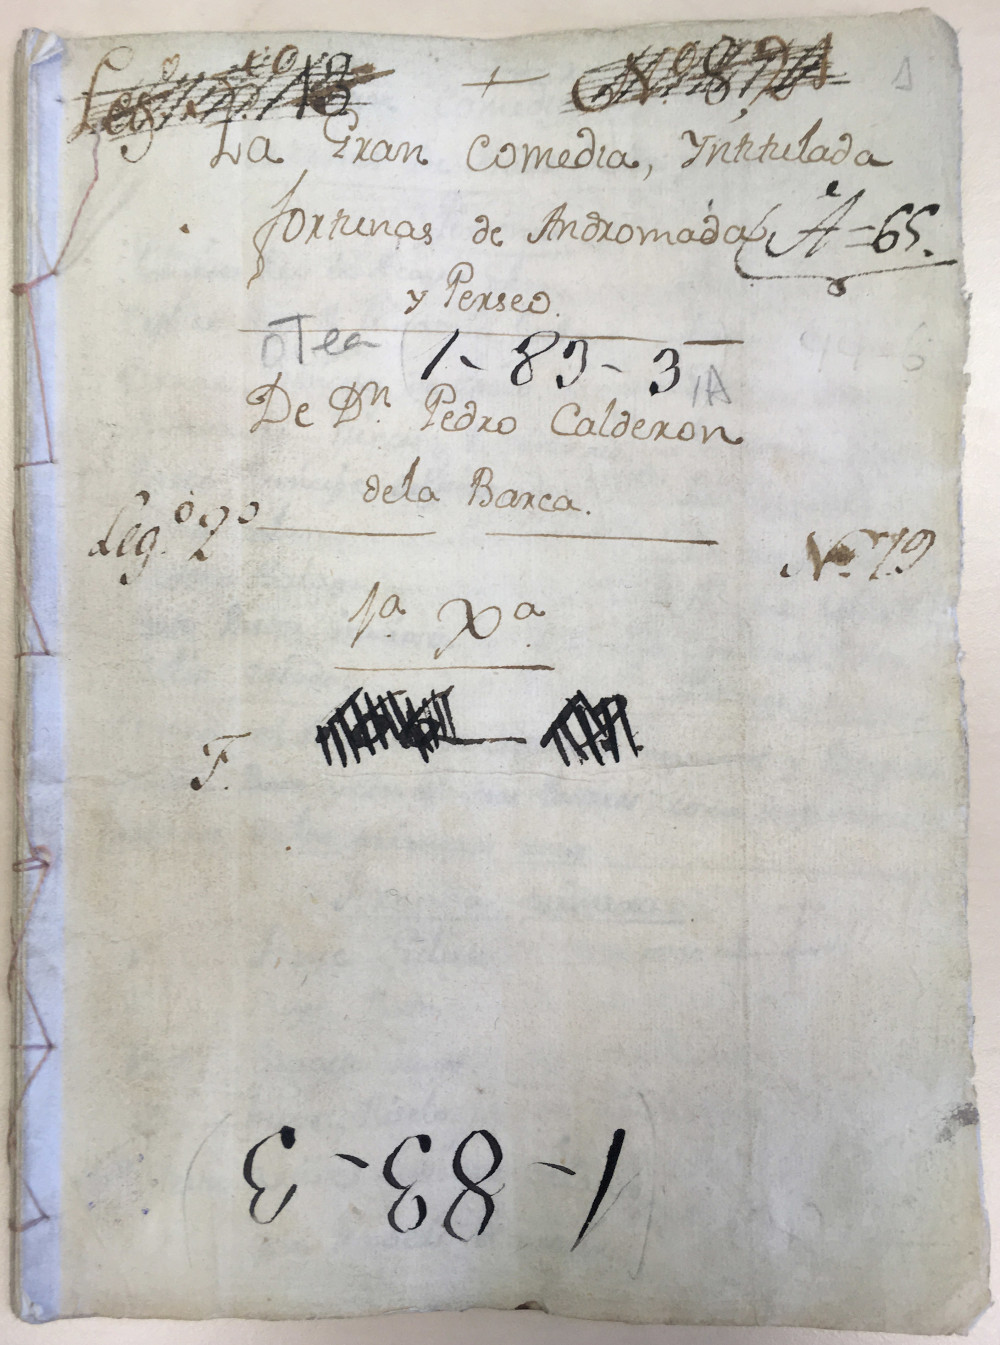 Leg.º 18 + Nº 87
1
La Gran Comedia, Yntitulada
fortunas de Andromada
A=65.
y Perseo.
Tea 1-83-3
1A
De Dⁿ. Pedro Calderon
dela Barca.
Leg.º 2º
Nº 19
1ª Xª
T.
1-83-3